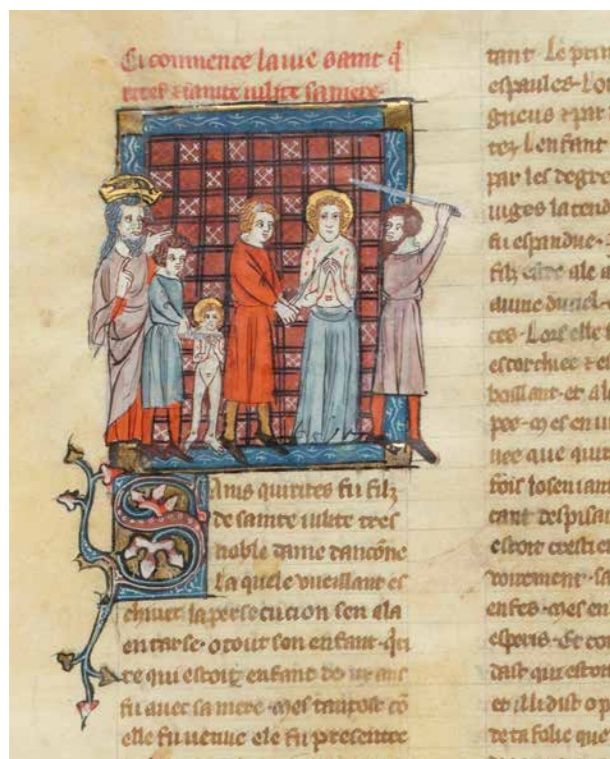 Ci commence la uie saint q̄
rices ⁊ sainte iulite sa mere·
Sains quirites fu filz
de sainte iulite tres
noble dame danconne
La quele vueillant es
chiuer la persecucion sen ala
en tarse· o tout son enfant· q̄ri
ce qui estoit enfant de ·iii· ans
fu auec sa mere· mes tantost cō
elle fu uenue ele fu presentee
tant Le prin
espaules· Lor
par les degre
fu espandue·
filz estre ale a
ces· Lors elle
escorchiee ⁊ en
boillant· et a la
uee que quir
fois iosen
tant despisan
estoit crestien
enfes· mes en
esperis· Et com
dast qui estoit
et il li dist o p
de ta folie que